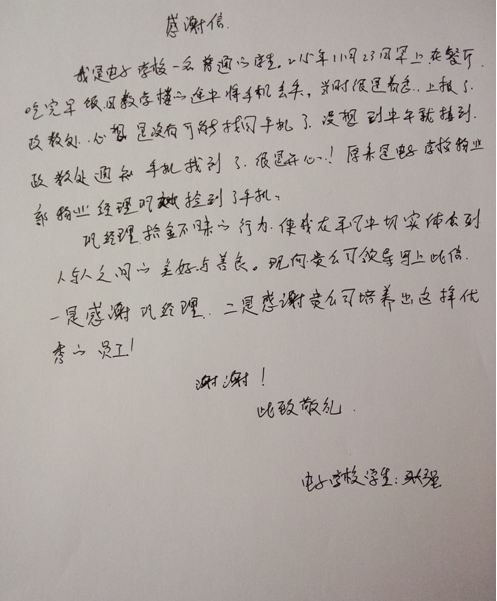 感谢信
我是电子学校一名普通的学生。2015年11月23日早上在餐厅
吃完早饭回教学楼的途中将手机丢失，当时很是着急，上报了
政教处，心想是没有可能找回手机了，没想到中午就接到
政教处通知手机找到了，很是开心！原来是电子学校物业
部物业经理巩 捡到了手机。
巩经理拾金不昧的行为，使我在平凡中切实体会到
人与人之间的美好与善良。现向贵公司领导写上此信，
一是感谢巩经理，二是感谢贵公司培养出这样优
秀的员工！
谢谢！
此致敬礼
电子学校学生：张强